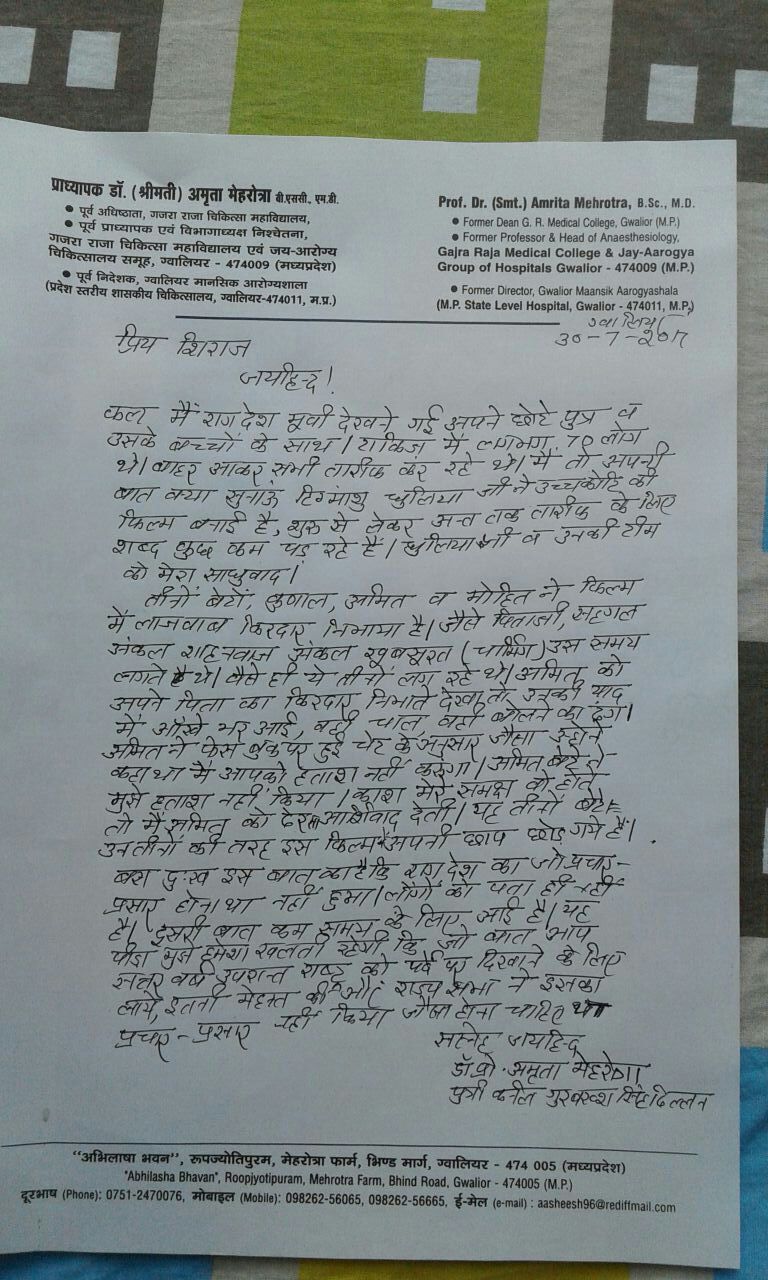 प्राध्यापक डॉ. (श्रीमती) अमृता मेहरोत्रा बी.एससी., एम.डी.
• पूर्व अधिष्ठाता, गजरा राजा चिकित्सा महाविद्यालय,
• पूर्व प्राध्यापक एवं विभागाध्यक्ष निश्चेतना,
गजरा राजा चिकित्सा महाविद्यालय एवं जय-आरोग्य
चिकित्सालय समूह, ग्वालियर - 474009 (मध्यप्रदेश)
• पूर्व निदेशक, ग्वालियर मानसिक आरोग्यशाला
(प्रदेश स्तरीय शासकीय चिकित्सालय, ग्वालियर-474011, म.प्र.)
Prof. Dr. (Smt.) Amrita Mehrotra, B.Sc., M.D.
• Former Dean G. R. Medical College, Gwalior (M.P.)
• Former Professor & Head of Anaesthesiology,
Gajra Raja Medical College & Jay-Aarogya
Group of Hospitals Gwalior - 474009 (M.P.)
• Former Director, Gwalior Maansik Aarogyashala
(M.P. State Level Hospital, Gwalior - 474011, M.P.)
ग्वालियर
30-7-2017
प्रिय शिराज
जयहिन्द!
कल मैं राग देश मूवी देखने गई अपने छोटे पुत्र व
उसके बच्चों के साथ। टाकिज में लगभग 70 लोग
थे। बाहर आकर सभी तारीफ कर रहे थे। मैं तो अपनी
बात क्या सुनाऊं तिग्मांशु धुलिया जी ने उच्चकोटि की
फिल्म बनाई है, शुरू से लेकर अन्त तक तारीफ के लिए
शब्द कुछ कम पड़ रहे हैं। धुलिया जी व उनकी टीम
को मेरा साधुवाद।
तीनों बेटों, कुणाल, अमित व मोहित ने फिल्म
में लाजवाब किरदार निभाया है। जैसे पिताजी, सहगल
अंकल शाहनवाज अंकल खूबसूरत (चार्मिंग) उस समय
लगते थे। वैसे ही ये तीनों लग रहे थे। अमित को
अपने पिता का किरदार निभाते देखा तो उनकी याद
में आँखे भर आई, वही चाल, वही बोलने का ढंग।
अमित ने फेस बुक पर हुई चेट के अनुसार जैसा उन्होंने
कहा था मैं आपको हताश नहीं करूंगा। अमित बेटे ने
मुझे हताश नहीं किया। काश मेरे समक्ष वो होते
तो मैं अमित को ढेर सा आशीर्वाद देती। यह तीनों बेटे
उन तीनों की तरह इस फिल्म में अपनी छाप छोड़ गये हैं।
बस दुःख इस बात का है कि राग देश का जो प्रचार-
प्रसार होना था नहीं हुआ। लोगों को पता ही नहीं
है। दूसरी बात कम समय के लिए आई है। यह
पीड़ा मुझे हमेशा खलती रहेगी कि जो बात आप
सत्तर वर्ष उपरान्त राष्ट्र को पर्दे पर दिखाने के लिए
लाये, इतनी मेहनत की और राज्य सभा ने इसका
प्रचार-प्रसार नहीं किया जैसा होना चाहिए था
सस्नेह जयहिन्द
डॉ. प्रो. अमृता मेहरोत्रा
पुत्री कर्नल गुरबख्श सिंह ढिल्लन
"अभिलाषा भवन", रूपज्योतिपुरम, मेहरोत्रा फार्म, भिण्ड मार्ग, ग्वालियर - 474 005 (मध्यप्रदेश)
"Abhilasha Bhavan", Roopjyotipuram, Mehrotra Farm, Bhind Road, Gwalior - 474005 (M.P.)
दूरभाष (Phone): 0751-2470076, मोबाइल (Mobile): 098262-56065, 098262-56665, ई-मेल (e-mail) : aasheesh96@rediffmail.com